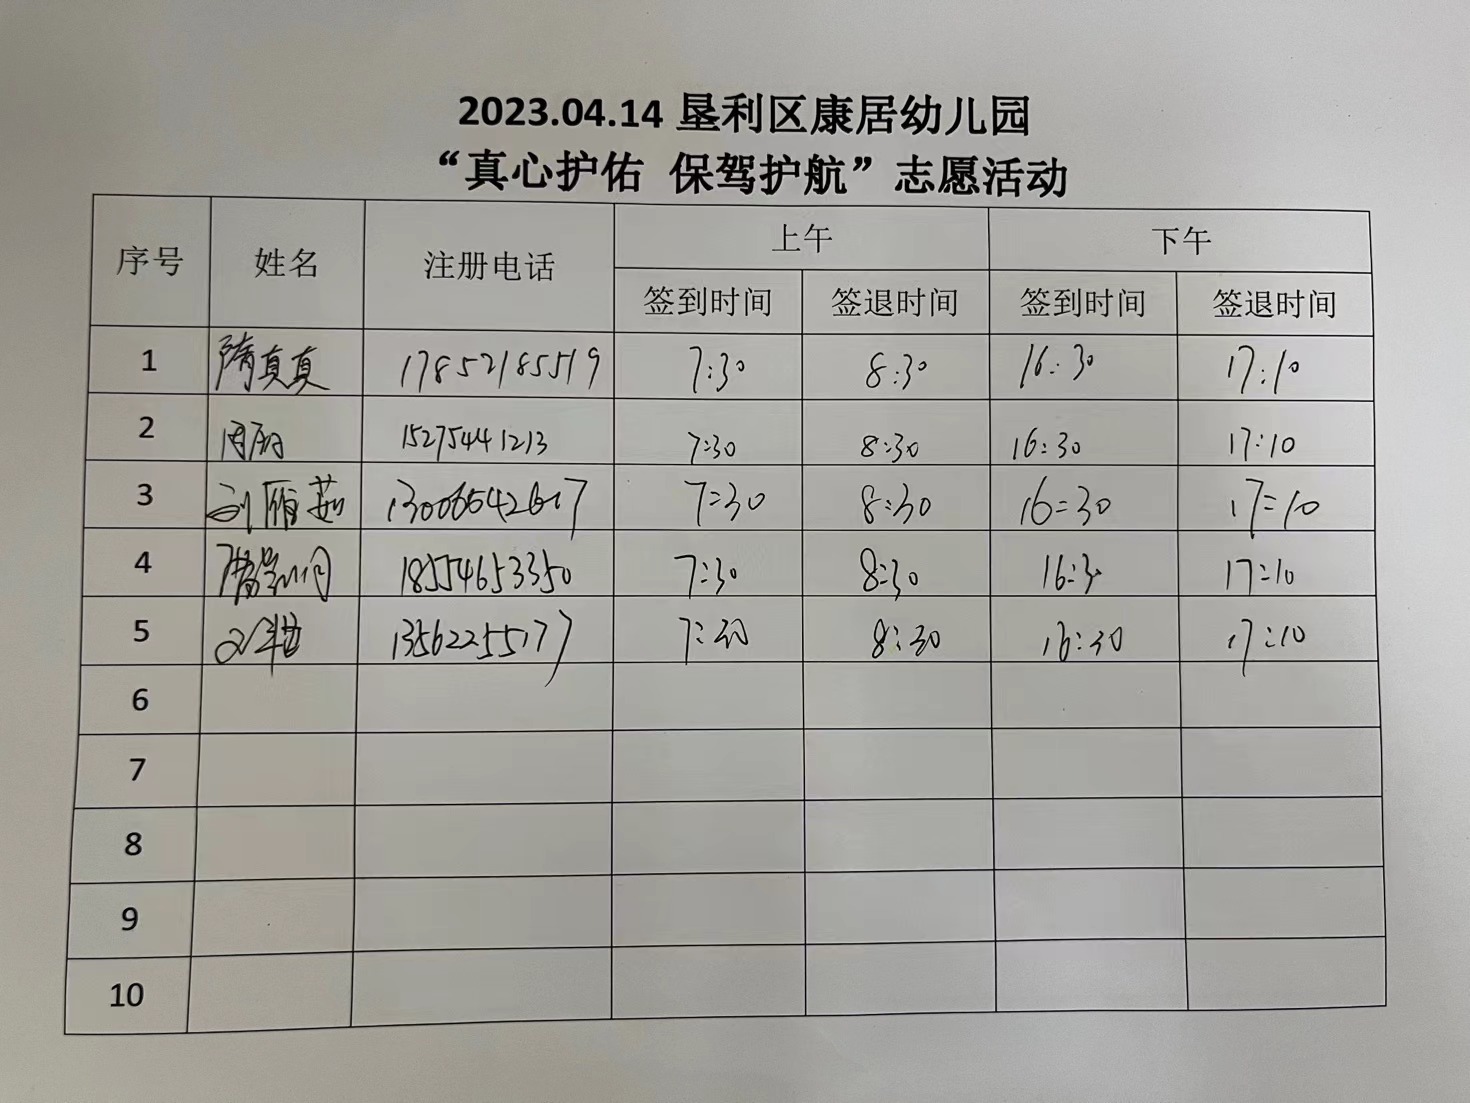 2023.04.14 垦利区康居幼儿园
“真心护佑 保驾护航”志愿活动
序号 姓名 注册电话 上午 下午
签到时间 签退时间 签到时间 签退时间
1 隋真真 17852185519 7:30 8:30 16:30 17:10
2 15275441213 7:30 8:30 16:30 17:10
3 刘雁茹 7:30 8:30 16:30 17:10
4 18554653350 7:30 8:30 16:30 17:10
5 13562255177 7:30 8:30 16:30 17:10
6
7
8
9
10